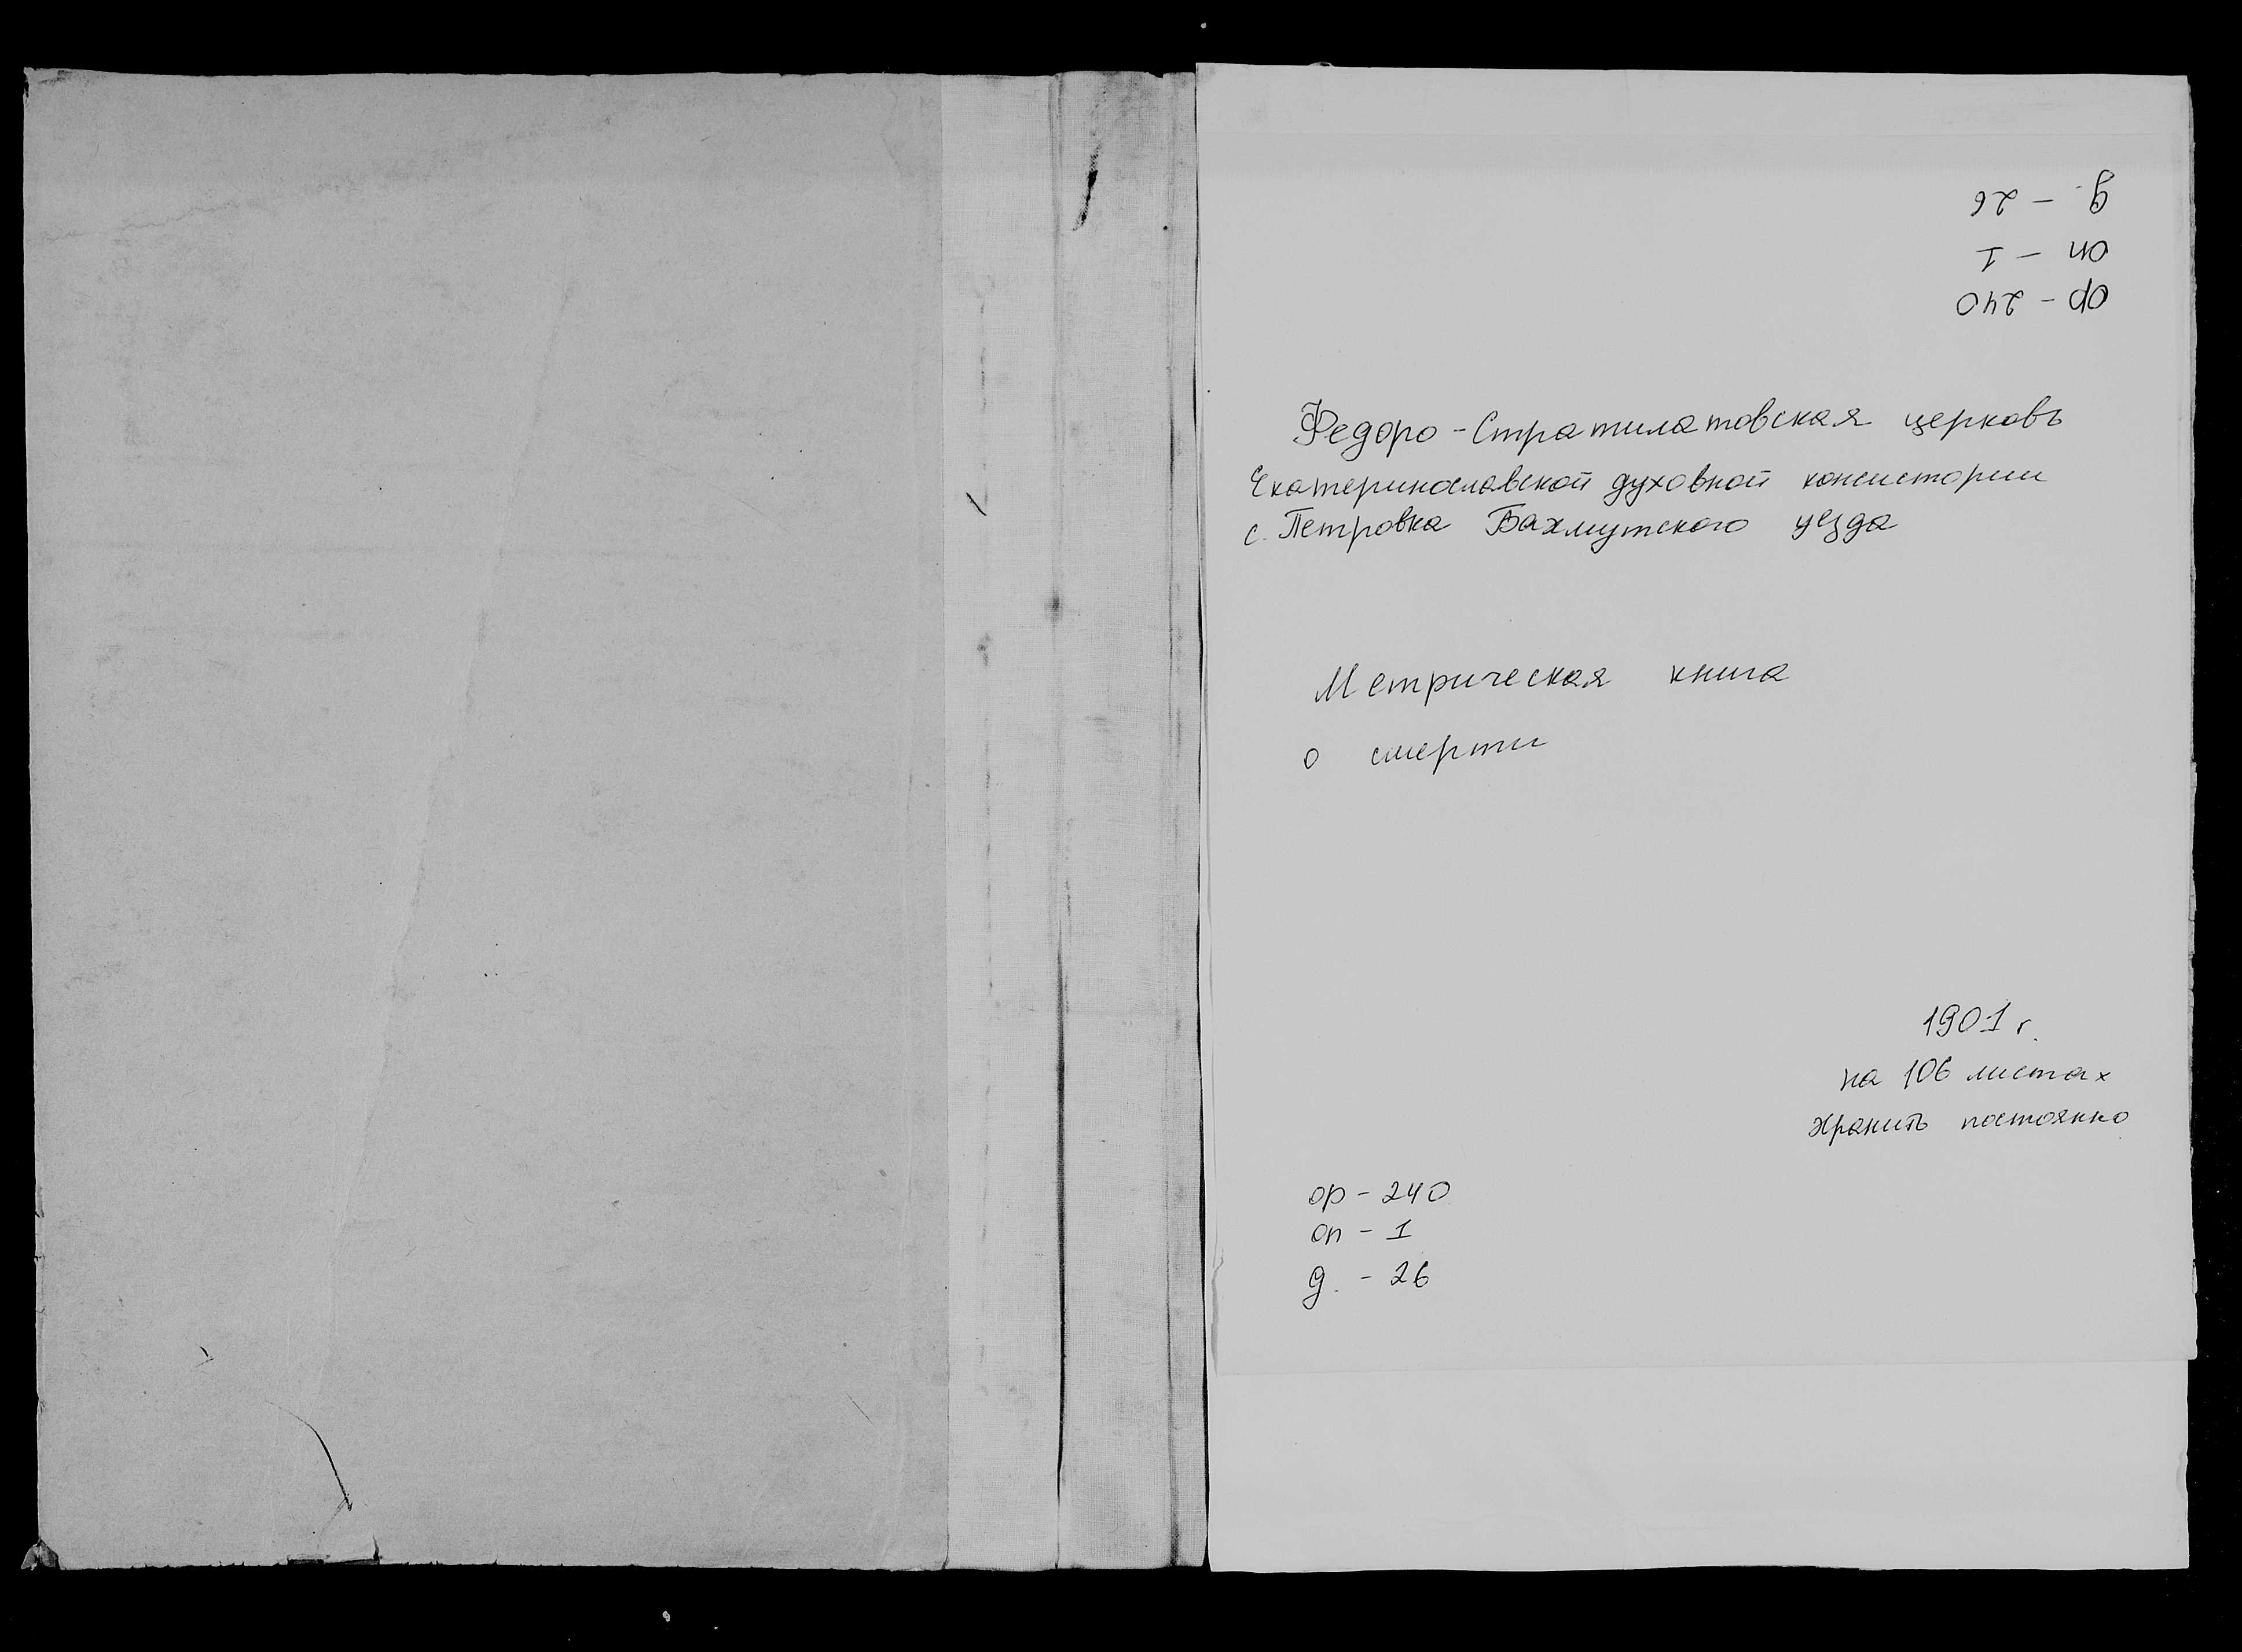 ф - 240
оп - 1
д. - 26
Федоро-Стратилатовская церковь
Екатеринославской духовной консистории
с. Петровка Бахмутского уезда
Метрическая книга
о смерти
1901 г.
на 106 листах
Хранить постоянно
ф - 240
оп - 1
д. - 26